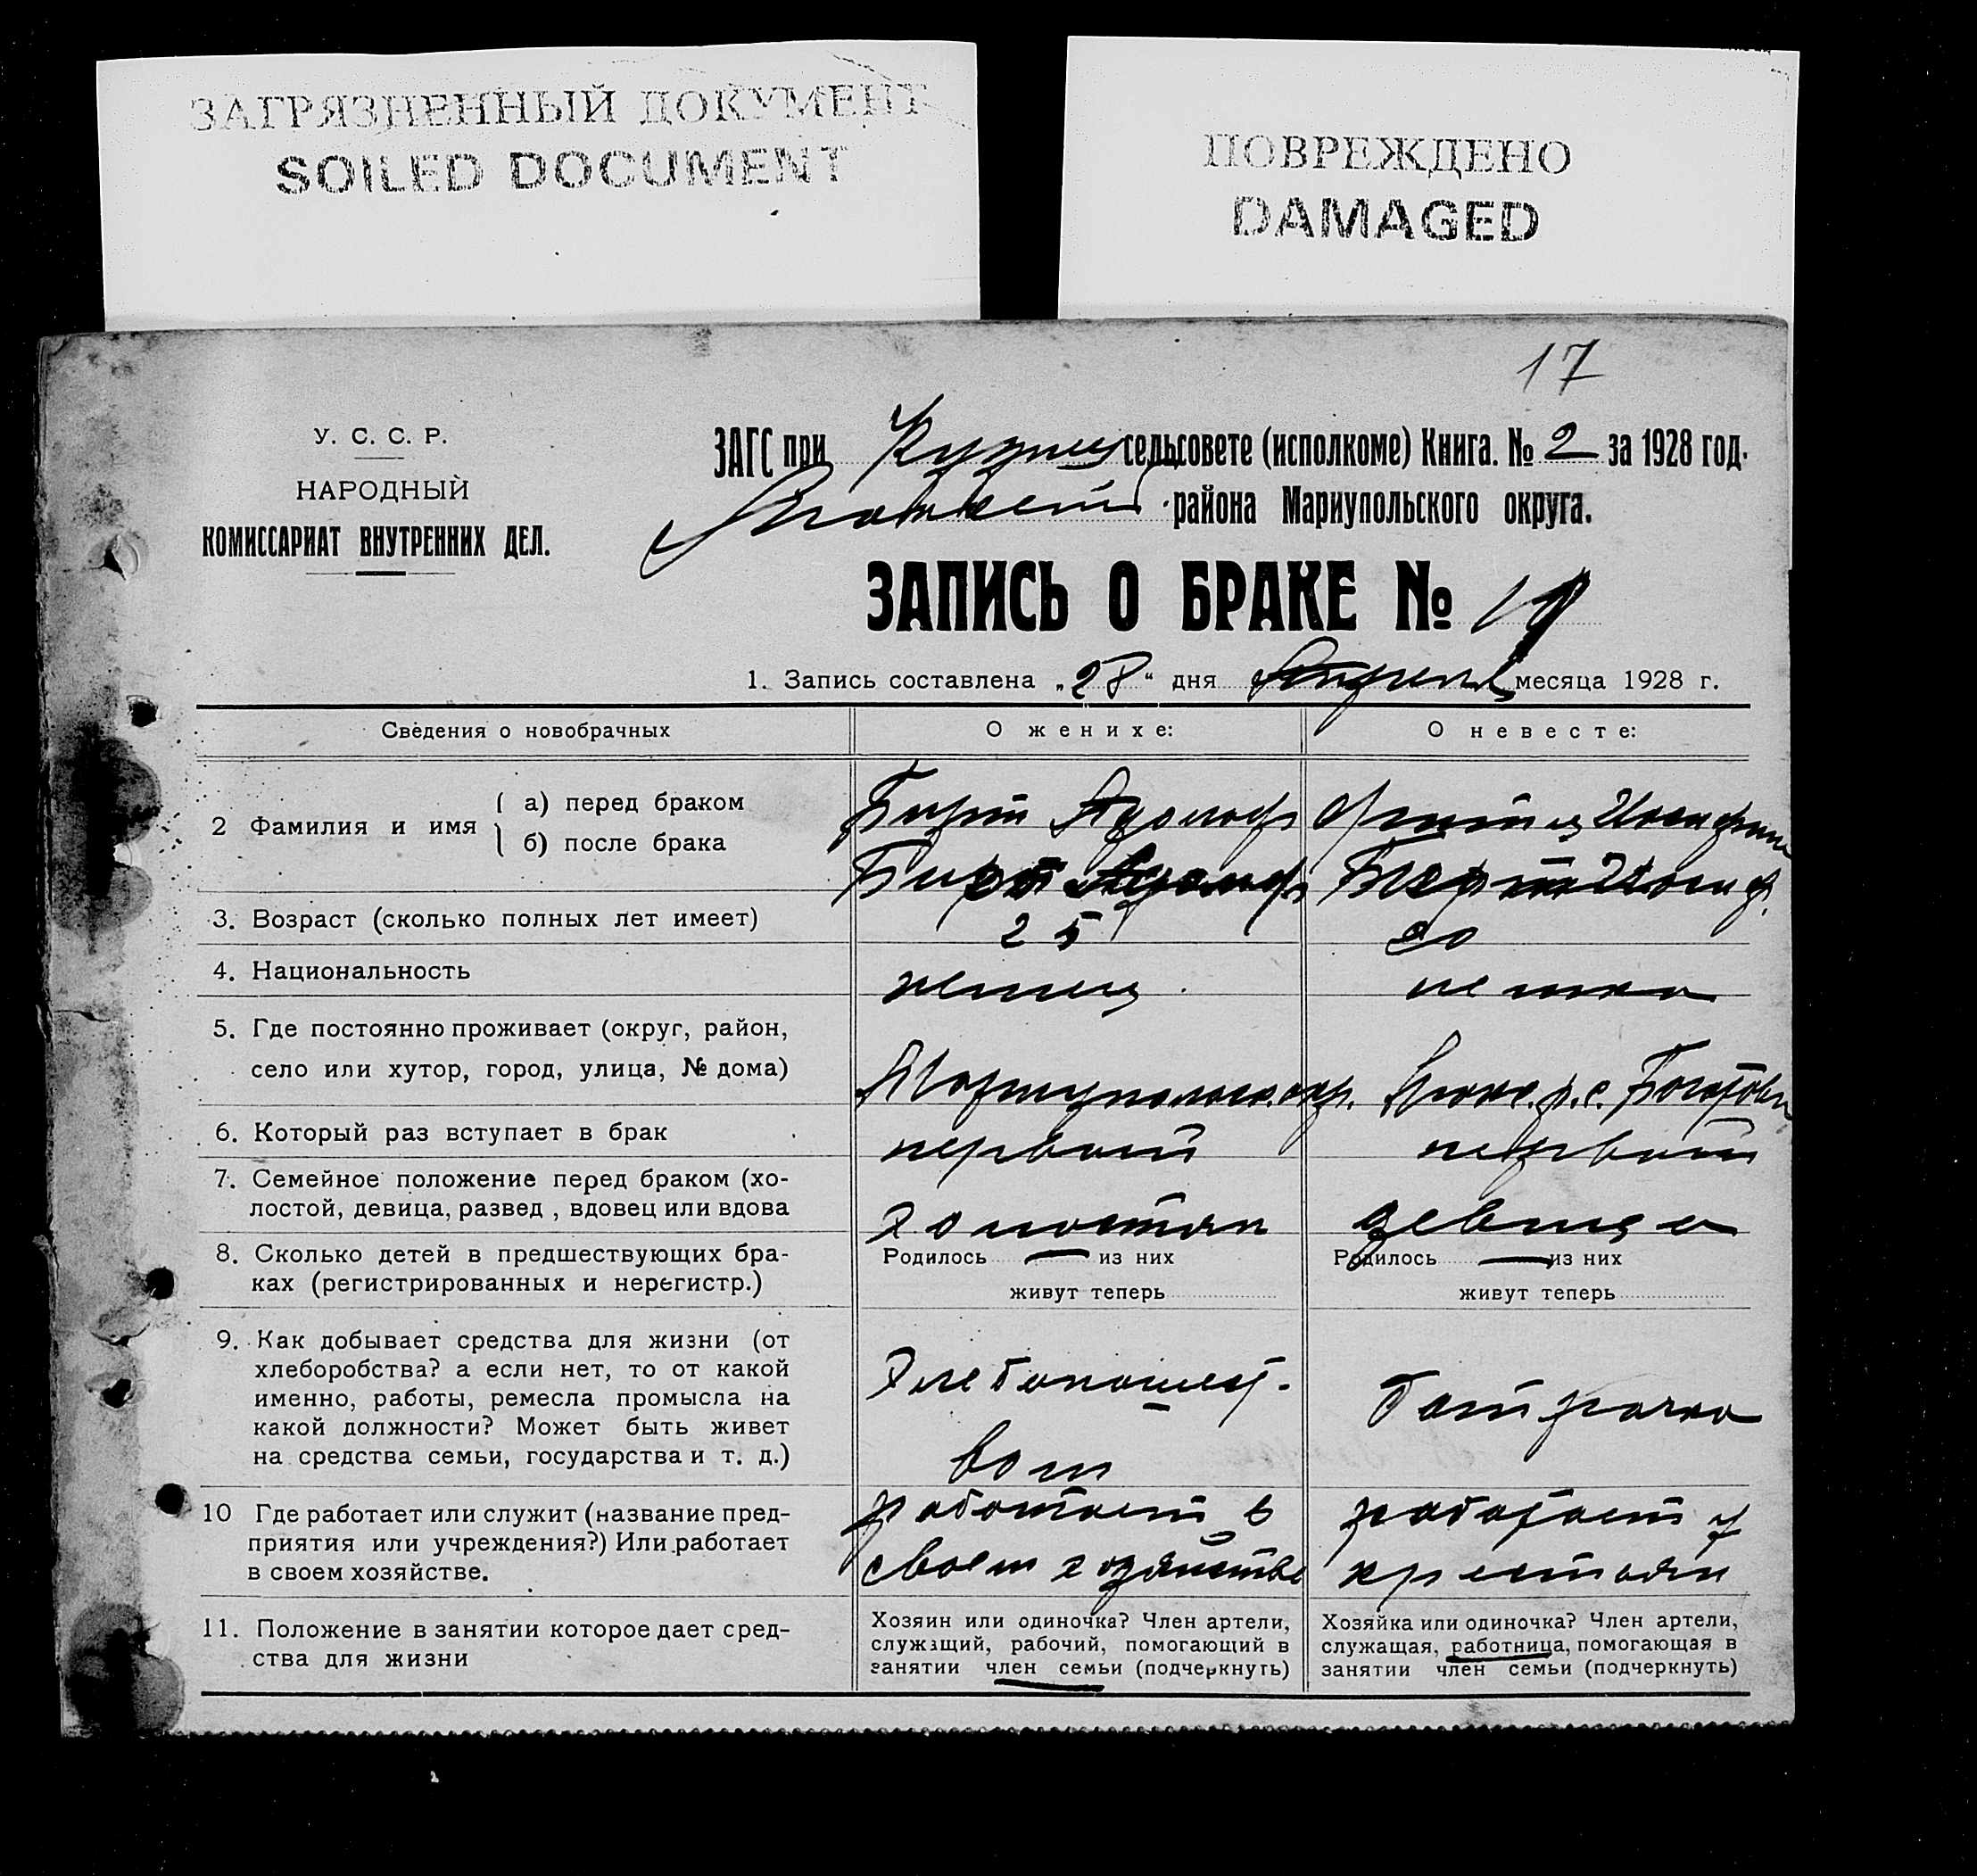 ЗАГРЯЗНЕННЫЙ ДОКУМЕНТ
SOILED DOCUMENT
ПОВРЕЖДЕНО
DAMAGED
17
У. С. С. Р.
НАРОДНЫЙ
КОМИССАРИАТ ВНУТРЕННИХ ДЕЛ.
ЗАГС при сельсовете (исполкоме) Книга. № 2 за 1928 год.
района Мариупольского округа.
ЗАПИСЬ О БРАКЕ №
1. Запись составлена „28“ дня Апреля месяца 1928 г.
Сведения о новобрачных
О женихе:
О невесте:
2 Фамилия и имя
а) перед браком
б) после брака
Адольф
Адольф
3. Возраст (сколько полных лет имеет)
25
20
4. Национальность
немец
немка
5. Где постоянно проживает (округ, район,
село или хутор, город, улица, № дома)
Мариупольск. окр.
6. Который раз вступает в брак
первый
первый
7. Семейное положение перед браком (хо-
лостой, девица, развед , вдовец или вдова
холостяк
девица
8. Сколько детей в предшествующих бра-
ках (регистрированных и нерегистр.)
Родилось — из них
живут теперь
Родилось — из них
живут теперь
9. Как добывает средства для жизни (от
хлеборобства? а если нет, то от какой
именно, работы, ремесла промысла на
какой должности? Может быть живет
на средства семьи, государства и т. д.)
Хлебопашест-
вом
батрачка
10 Где работает или служит (название пред-
приятия или учреждения?) Или работает
в своем хозяйстве.
работает в
своем хозяйстве
работает у
крестьян
11. Положение в занятии которое дает сред-
ства для жизни
Хозяин или одиночка? Член артели,
служащий, рабочий, помогающий в
занятии член семьи (подчеркнуть)
Хозяйка или одиночка? Член артели,
служащая, работница, помогающая в
занятии член семьи (подчеркнуть)